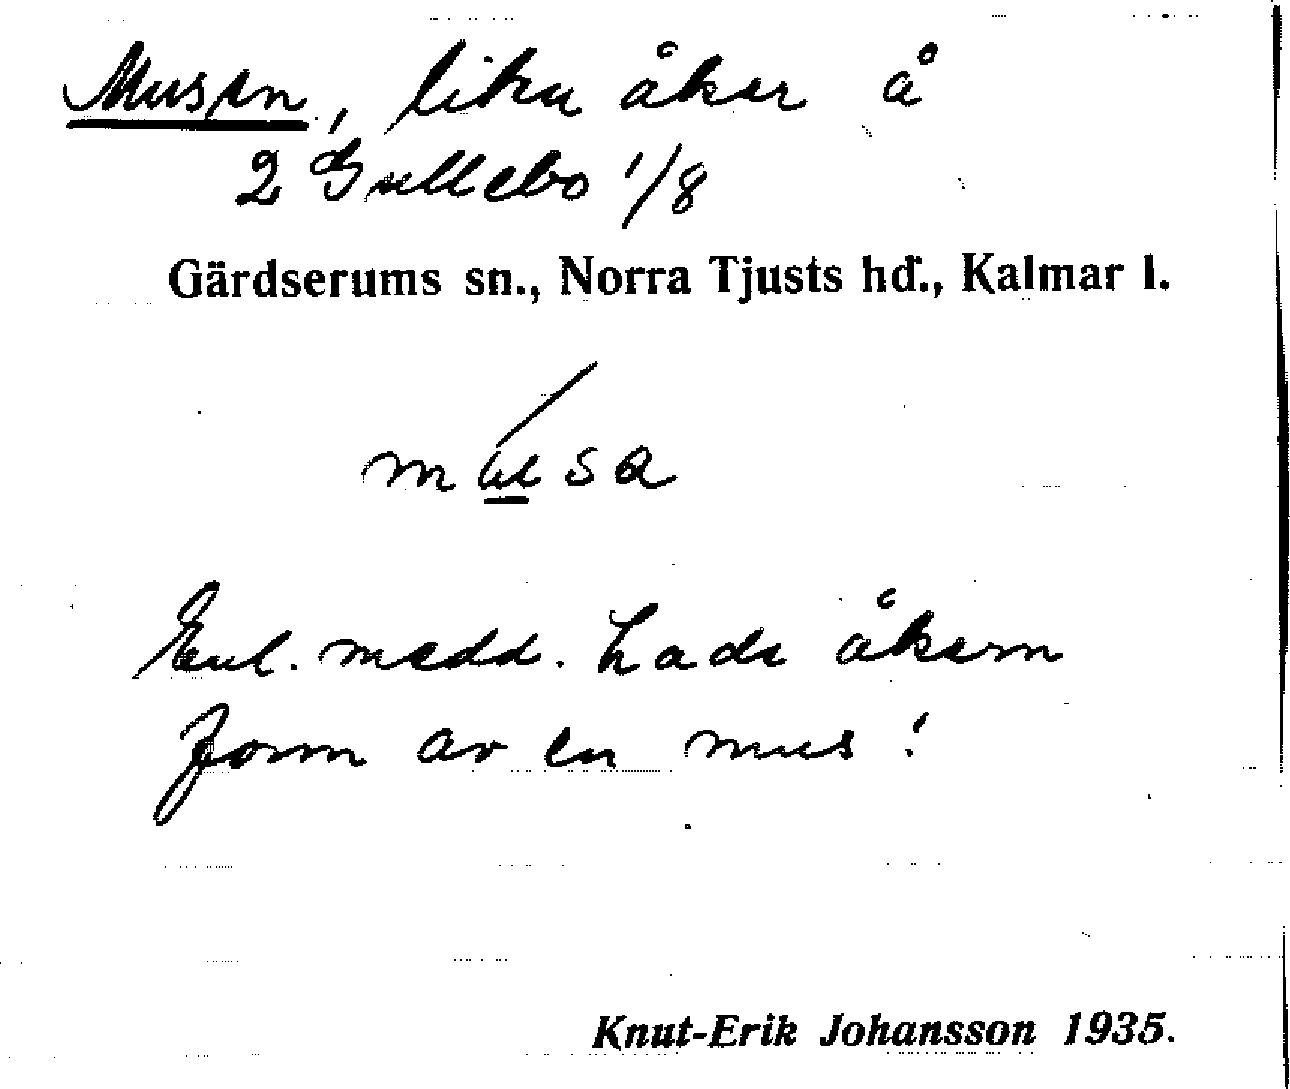 Musen, liten åker å
2 Gullebo 1/8
Gärdserums sn., Norra Tjusts hd., Kalmar l.
mu̲sa
Enl. medd. hade åkern
form av en mus!
Knut-Erik Johansson 1935.